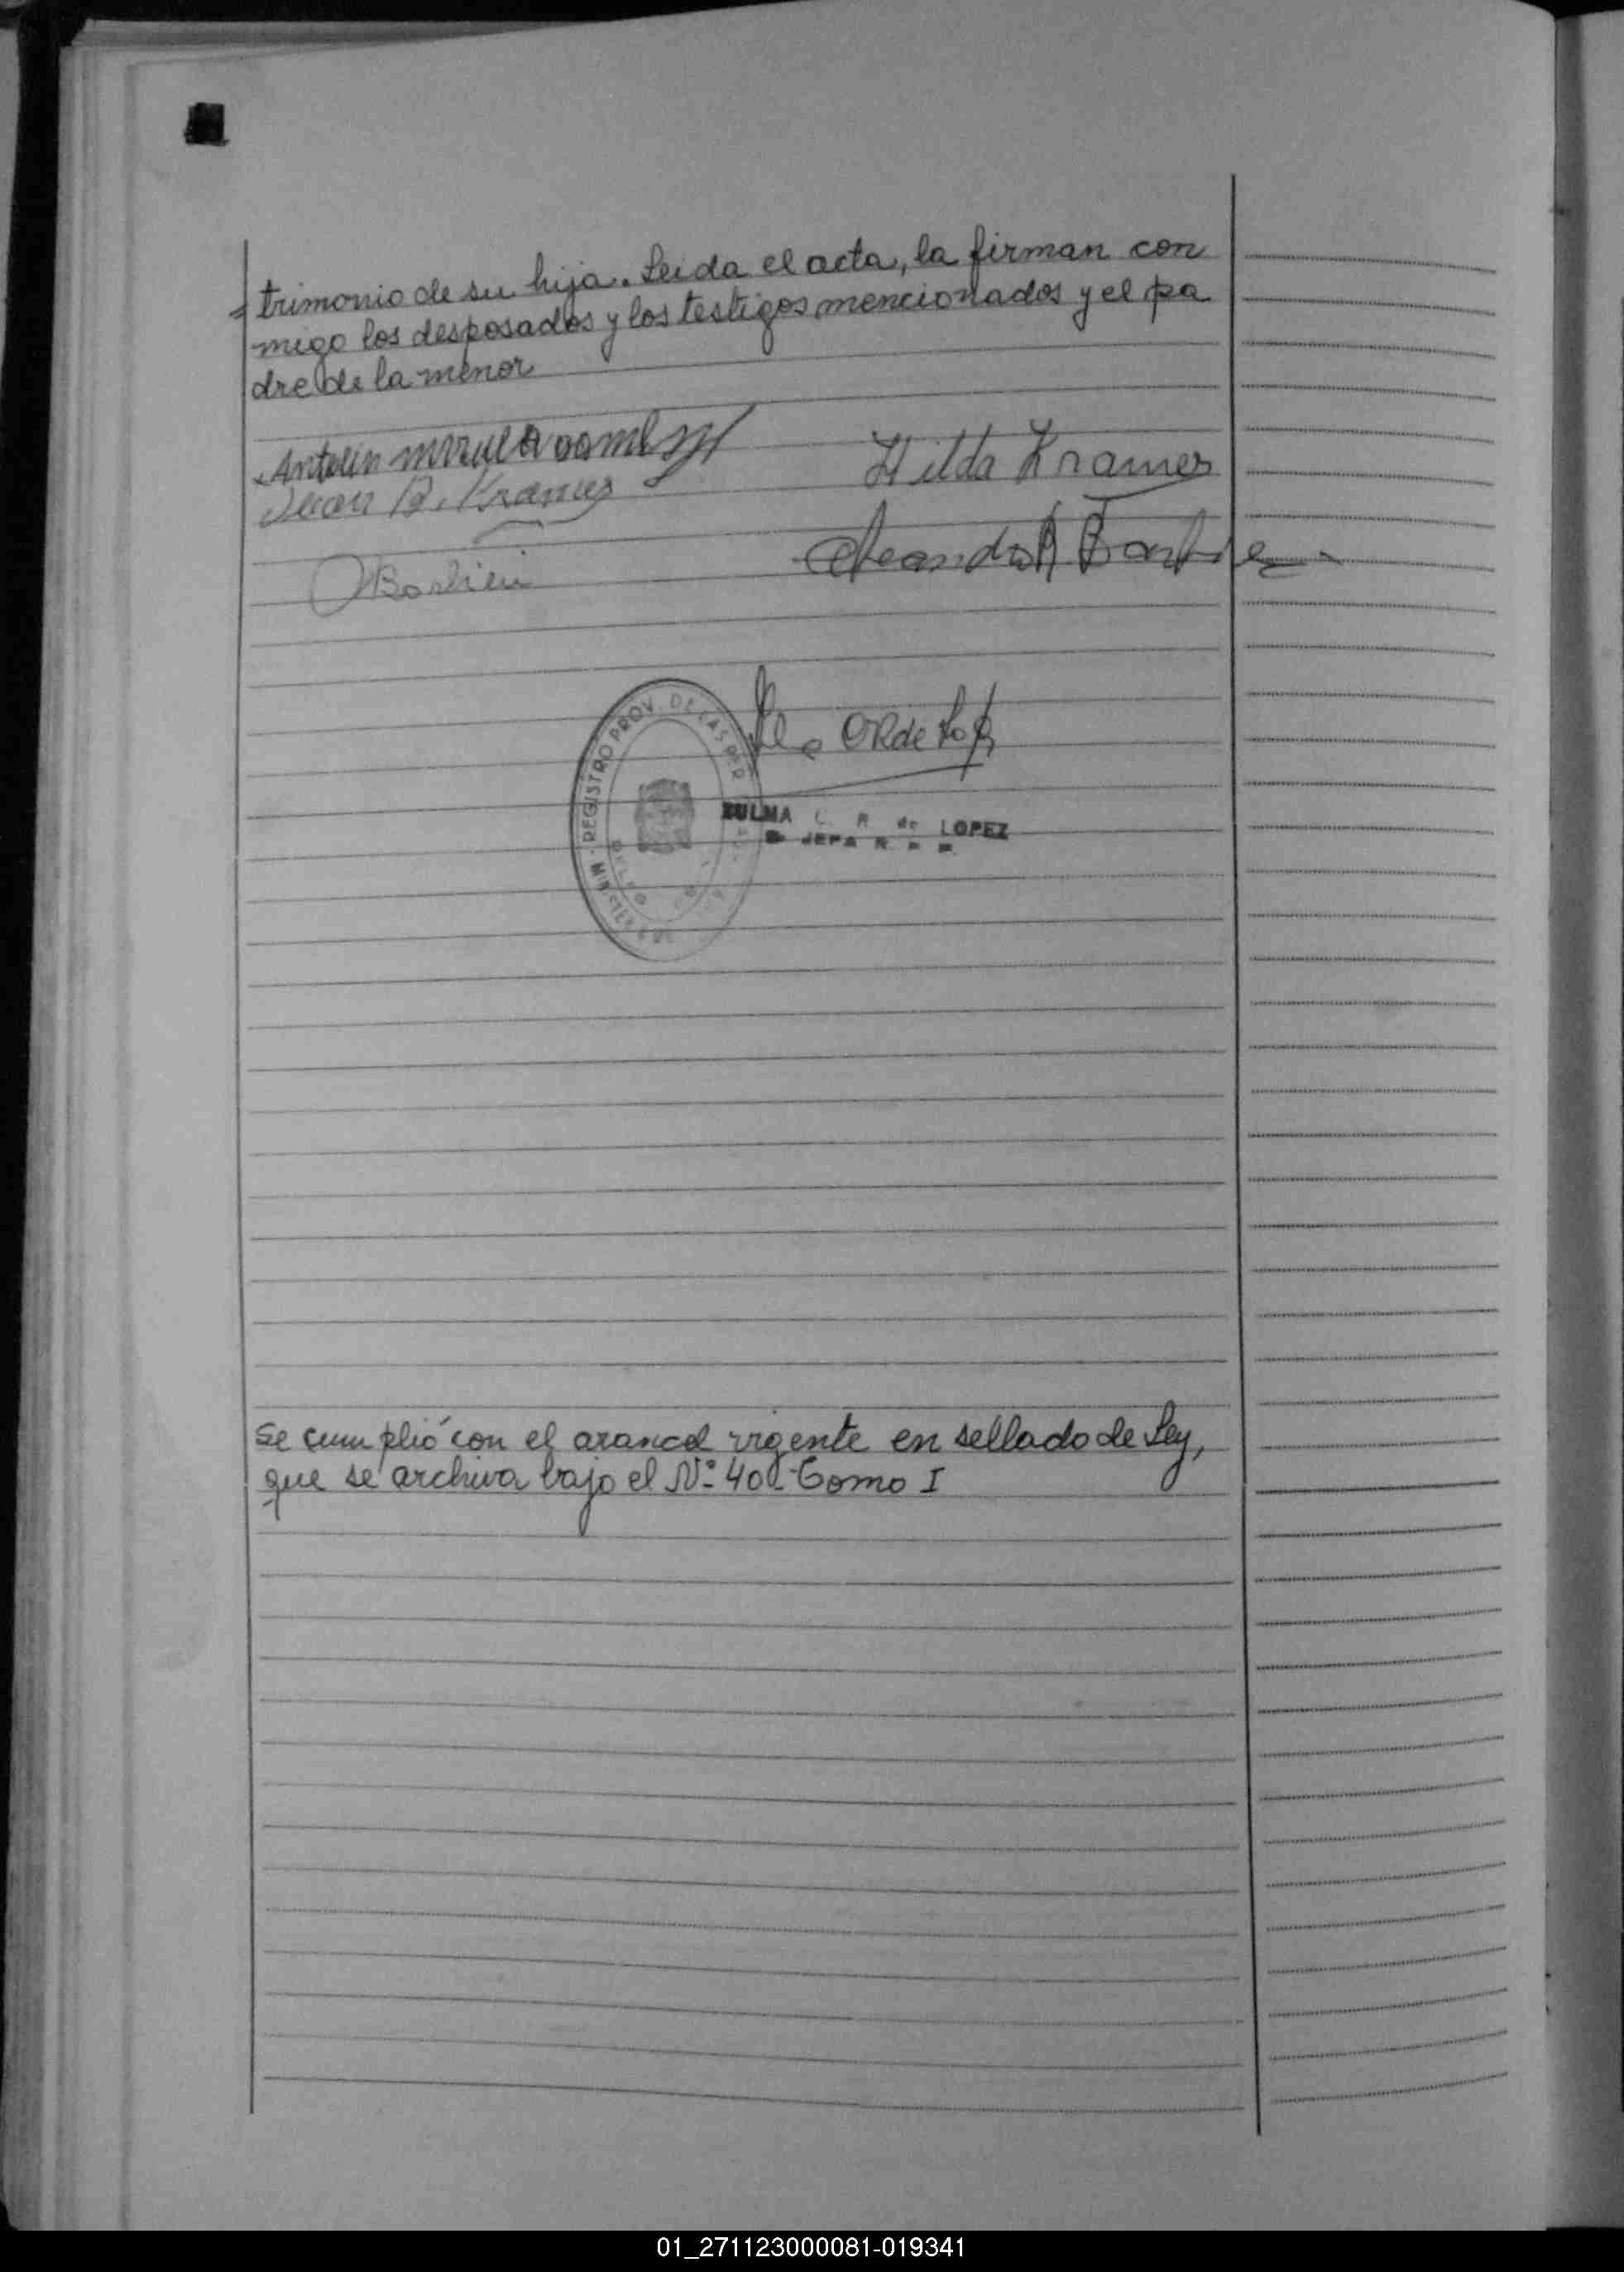 = trimonio de su hija. Leida el acta, la firman con
migo los desposados y los testigos mencionados y el pa
dre de la menor
Antolin
Hilda Kramer
Juan B. Kramer
Barbieri
REGISTRO PROV. DE LAS PER
ZULMA L. R. de LOPEZ
JEFA
Se cumplió con el arancel vigente en sellado de Ley,
que se archiva bajo el Nº 40 - Tomo I
01_271123000081-019341